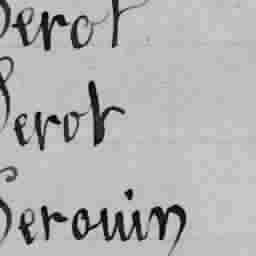 Perot
Perot
Perouin